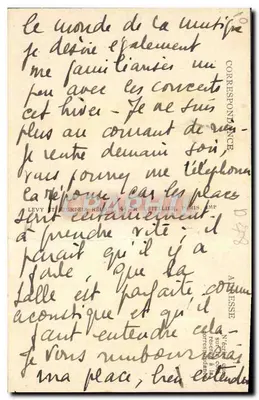 le monde de la musique
je désire également
me familiariser un
peu avec les concerts
cet hiver - Je ne suis
plus au courant de rien
je rentre demain soir,
vous pourrez me téléphoner
la réponse car les places
sont certainement
à prendre vite ; il
parait qu'il y a
foule, que la
salle est parfaite comme
acoustique et qu'il
faut entendre cela -
Je vous rembourserai
ma place, bien entendu
CORRESPONDANCE
ADRESSE